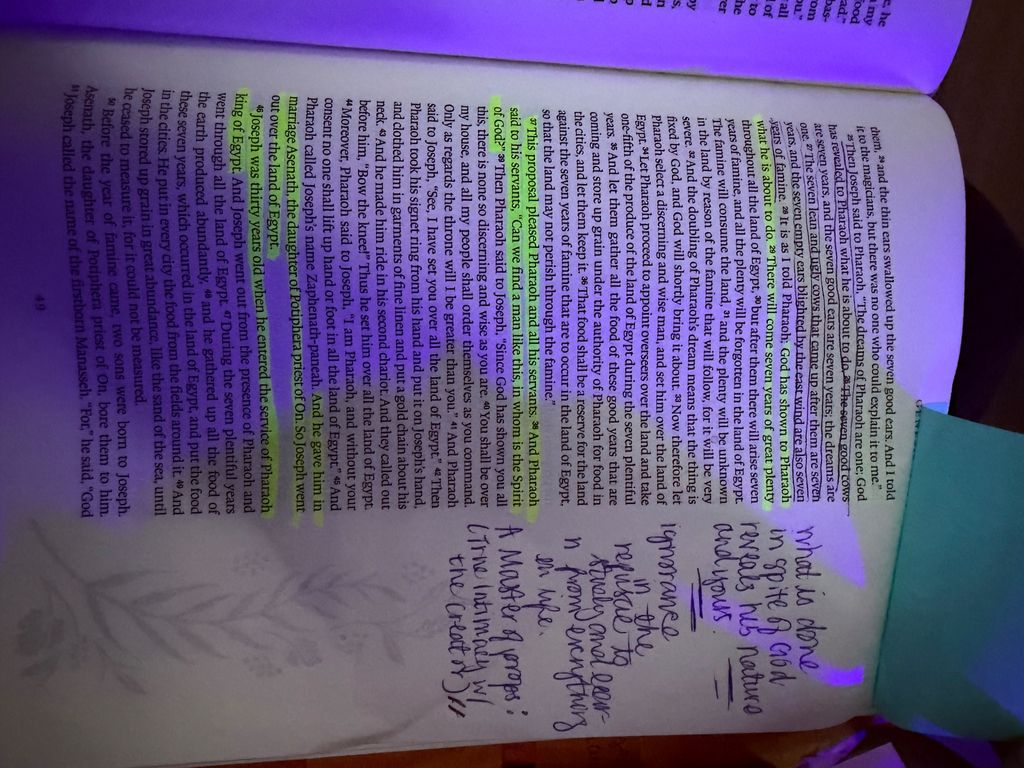 them. 24 and the thin ears swallowed up the seven good ears. And I told
it to the magicians, but there was no one who could explain it to me."
25 Then Joseph said to Pharaoh, "The dreams of Pharaoh are one; God
has revealed to Pharaoh what he is about to do. 26 The seven good cows
are seven years, and the seven good ears are seven years; the dreams are
one. 27 The seven lean and ugly cows that came up after them are seven
years, and the seven empty ears blighted by the east wind are also seven
years of famine. 28 It is as I told Pharaoh; God has shown to Pharaoh
what he is about to do. 29 There will come seven years of great plenty
throughout all the land of Egypt, 30 but after them there will arise seven
years of famine, and all the plenty will be forgotten in the land of Egypt.
The famine will consume the land, 31 and the plenty will be unknown
in the land by reason of the famine that will follow, for it will be very
severe. 32 And the doubling of Pharaoh's dream means that the thing is
fixed by God, and God will shortly bring it about. 33 Now therefore let
Pharaoh select a discerning and wise man, and set him over the land of
Egypt. 34 Let Pharaoh proceed to appoint overseers over the land and take
one-fifth of the produce of the land of Egypt during the seven plentiful
years. 35 And let them gather all the food of these good years that are
coming and store up grain under the authority of Pharaoh for food in
the cities, and let them keep it. 36 That food shall be a reserve for the land
against the seven years of famine that are to occur in the land of Egypt,
so that the land may not perish through the famine."
37 This proposal pleased Pharaoh and all his servants. 38 And Pharaoh
said to his servants, "Can we find a man like this, in whom is the Spirit
of God?" 39 Then Pharaoh said to Joseph, "Since God has shown you all
this, there is none so discerning and wise as you are. 40 You shall be over
my house, and all my people shall order themselves as you command.
Only as regards the throne will I be greater than you." 41 And Pharaoh
said to Joseph, "See, I have set you over all the land of Egypt." 42 Then
Pharaoh took his signet ring from his hand and put it on Joseph's hand,
and clothed him in garments of fine linen and put a gold chain about his
neck. 43 And he made him ride in his second chariot. And they called out
before him, "Bow the knee!" Thus he set him over all the land of Egypt.
44 Moreover, Pharaoh said to Joseph, "I am Pharaoh, and without your
consent no one shall lift up hand or foot in all the land of Egypt." 45 And
Pharaoh called Joseph's name Zaphenath-paneah. And he gave him in
marriage Asenath, the daughter of Potiphera priest of On. So Joseph went
out over the land of Egypt.
46 Joseph was thirty years old when he entered the service of Pharaoh
king of Egypt. And Joseph went out from the presence of Pharaoh and
went through all the land of Egypt. 47 During the seven plentiful years
the earth produced abundantly, 48 and he gathered up all the food of
these seven years, which occurred in the land of Egypt, and put the food
in the cities. He put in every city the food from the fields around it. 49 And
Joseph stored up grain in great abundance, like the sand of the sea, until
he ceased to measure it, for it could not be measured.
50 Before the year of famine came, two sons were born to Joseph.
Asenath, the daughter of Potiphera priest of On, bore them to him.
51 Joseph called the name of the firstborn Manasseh. "For," he said, "God
49
What is done
in spite of God
reveals his nature
and yours.
ignorance
in the
refusal to
study and learn
from everything
in life.
A Master of props:
(True intimacy w/
the creator)